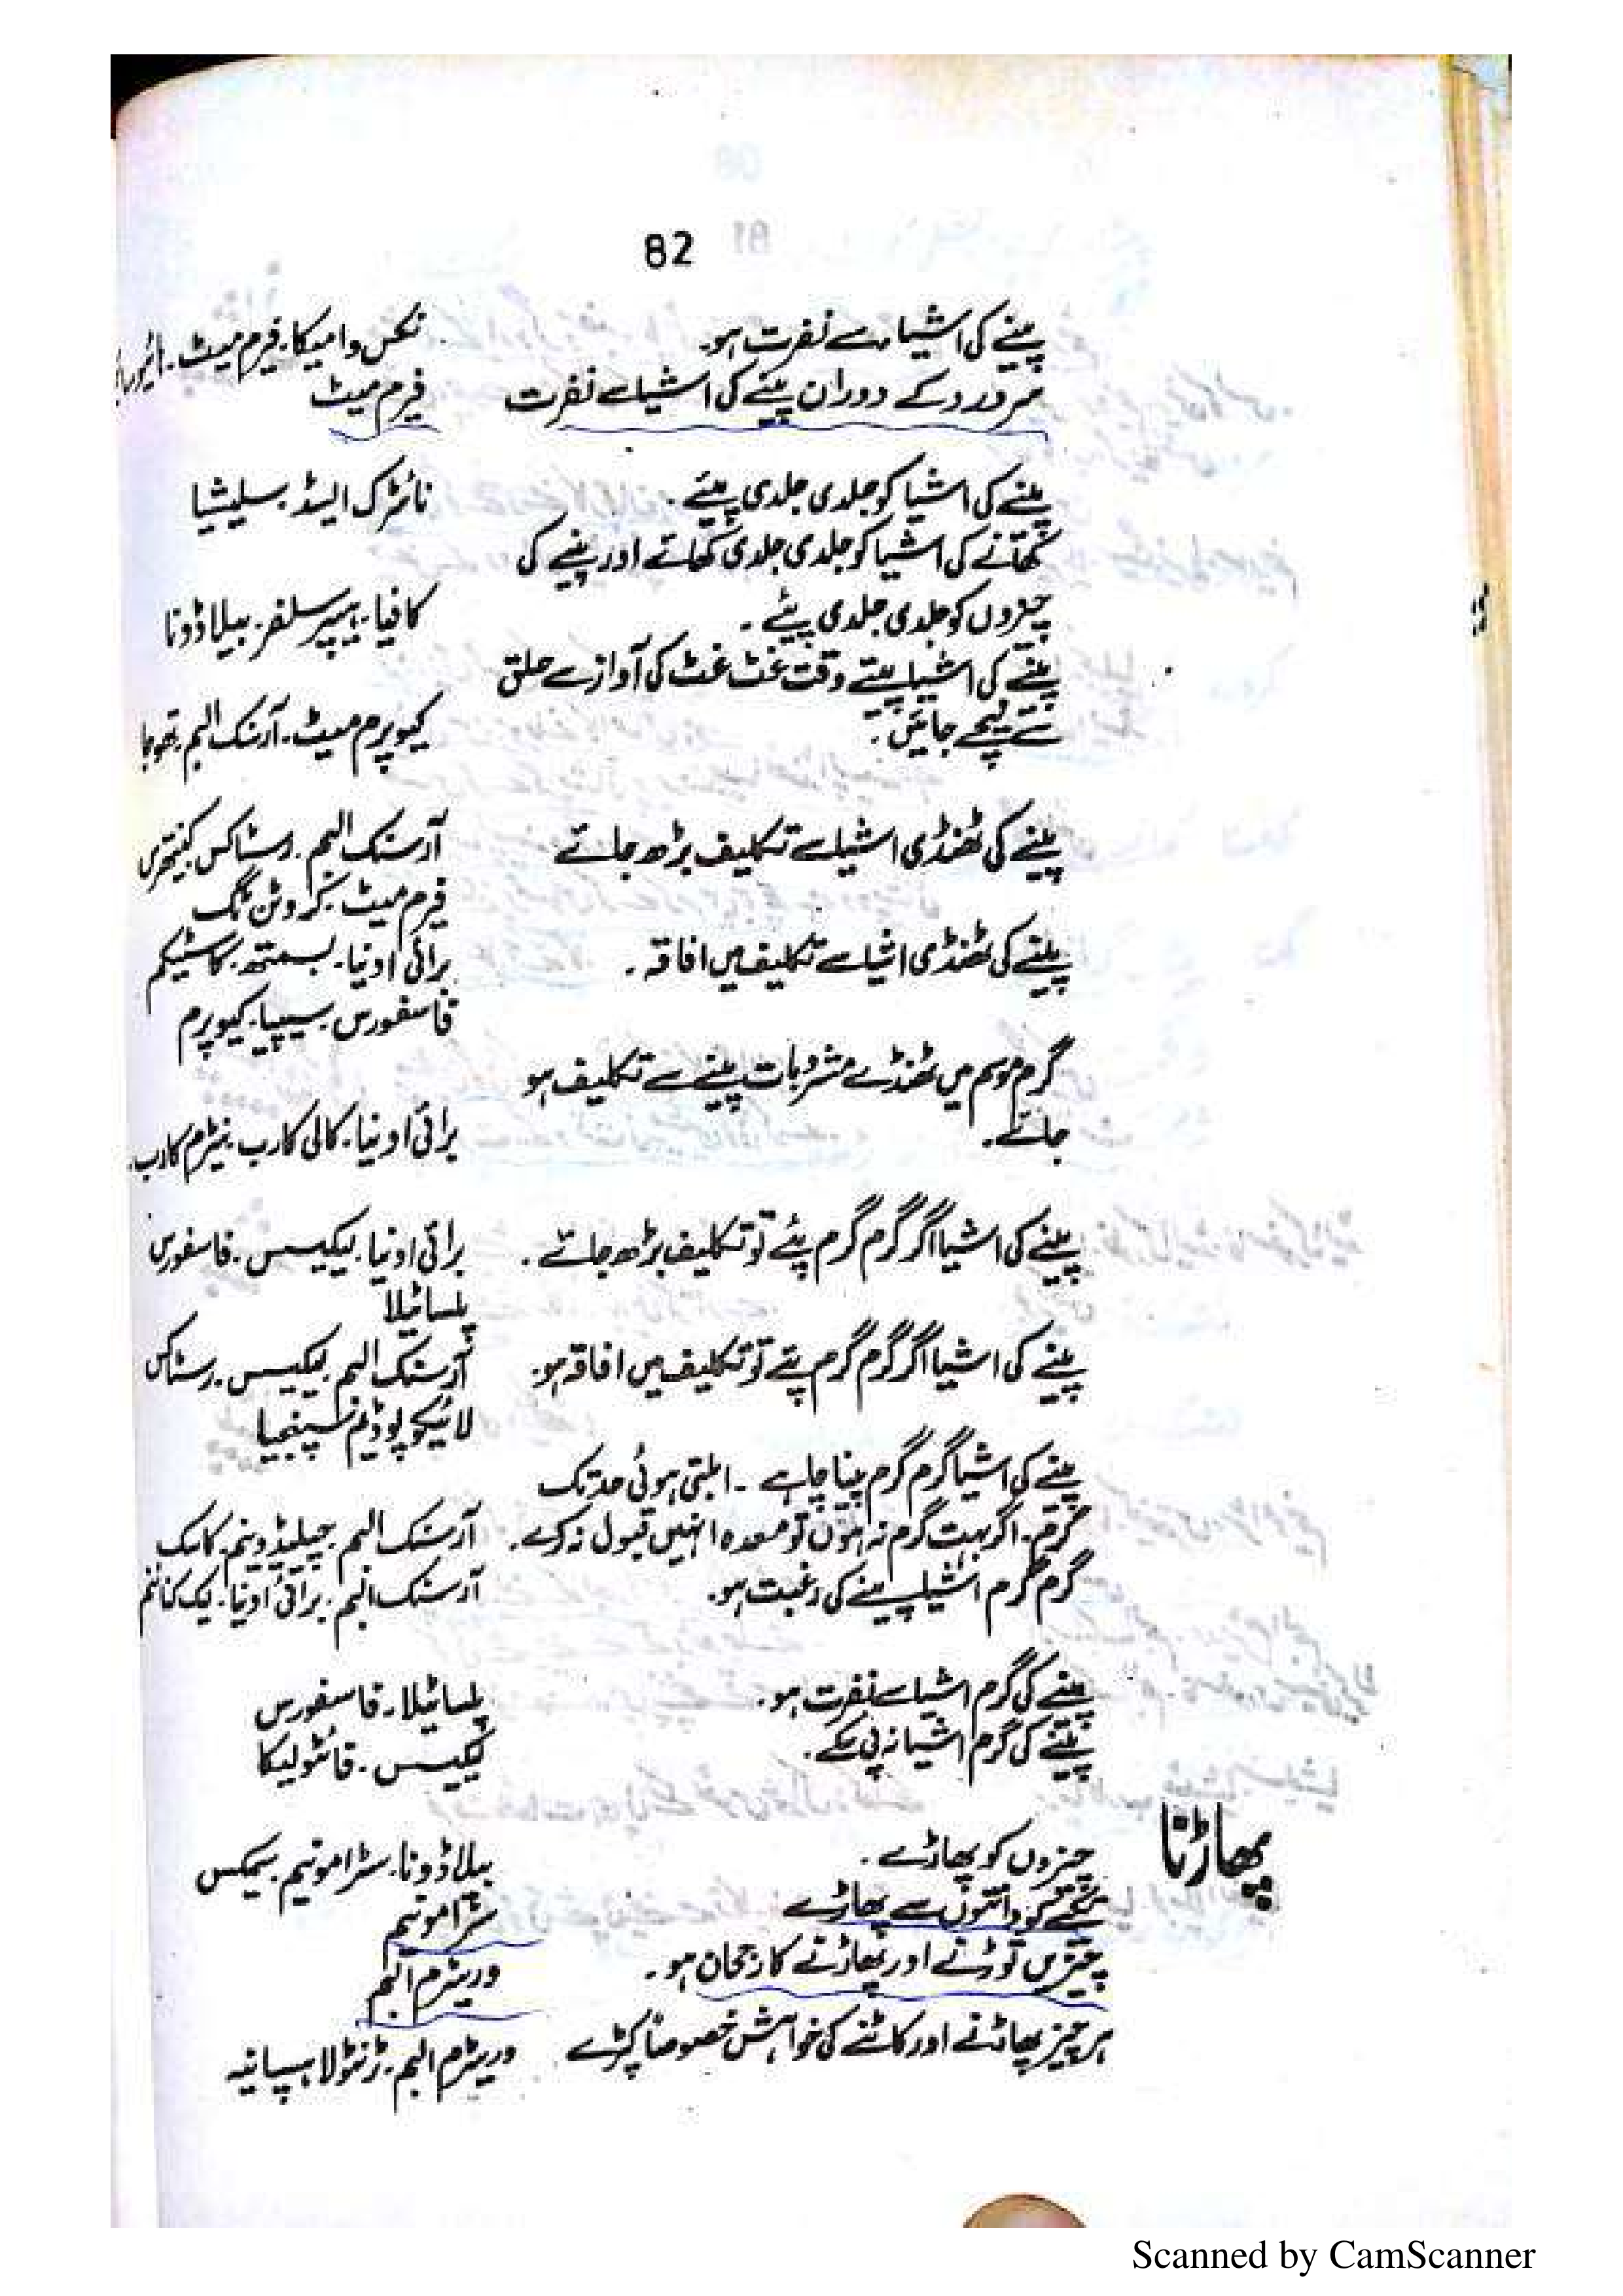 82
پینے کی اشیاء سے نفرت ہو۔ نکس وامیکا۔ فیرم میٹ۔
سر درد کے دوران پینے کی اشیا سے نفرت فیرم میٹ
پینے کی اشیا کو جلدی جلدی پیئے۔ نائٹرک ایسڈ۔ سلیشیا
کھانے کی اشیا کو جلدی جلدی کھائے اور پینے کی
چیزوں کو جلدی جلدی پیئے۔ کافیا۔ ہیپر سلفر۔ بیلاڈونا
پینے کی اشیا پیتے وقت غٹ غٹ کی آواز سے حلق
سے نیچے جائیں۔ کیوپرم میٹ۔ آرسنک البم۔ تھوجا
پینے کی ٹھنڈی اشیا سے تکلیف بڑھ جائے آرسنک البم۔ رسٹاکس۔ کینتھرس
فیرم میٹ۔ کروٹن ٹگ
پینے کی ٹھنڈی اشیا سے تکلیف میں افاقہ۔ برائی اونیا۔ بسمتھ۔ کاسٹیکم
فاسفورس۔ سیپیا۔ کیوپرم
گرم موسم میں ٹھنڈے مشروبات پینے سے تکلیف ہو
جائے۔ برائی اونیا۔ کالی کارب۔ نیٹرم کارب۔
پینے کی اشیا اگر گرم گرم پئے تو تکلیف بڑھ جائے۔ برائی اونیا۔ لیکیسس۔ فاسفورس
پلساٹیلا
پینے کی اشیا اگر گرم گرم پئے تو تکلیف میں افاقہ ہو۔ آرسنک البم۔ لیکیسس۔ رسٹاکس
لائیکوپوڈیم۔ سپنجیا
پینے کی اشیا گرم گرم پینا چاہے۔ ابلتی ہوئی حد تک
گرم۔ اگر بہت گرم نہ ہوں تو معدہ انہیں قبول نہ کرے۔ آرسنک البم۔ چیلیڈونیم۔
گرم گرم اشیا پینے کی رغبت ہو۔ آرسنک البم۔ برائی اونیا۔
پینے کی گرم اشیا سے نفرت ہو۔ پلساٹیلا۔ فاسفورس
پینے کی گرم اشیا نہ پی سکے۔ لیکیسس۔ فائٹولیکا
پھاڑنا
چیزوں کو پھاڑے۔ بیلاڈونا۔ سٹرامونیم۔
تکئے کو دانتوں سے پھاڑے سٹرامونیم
چیزیں توڑنے اور پھاڑنے کا رجحان ہو۔ وریٹرم البم
ہر چیز پھاڑنے اور کاٹنے کی خواہش خصوصاً کپڑے وریٹرم البم۔ ٹرنٹولا ہسپانیہ
Scanned by CamScanner